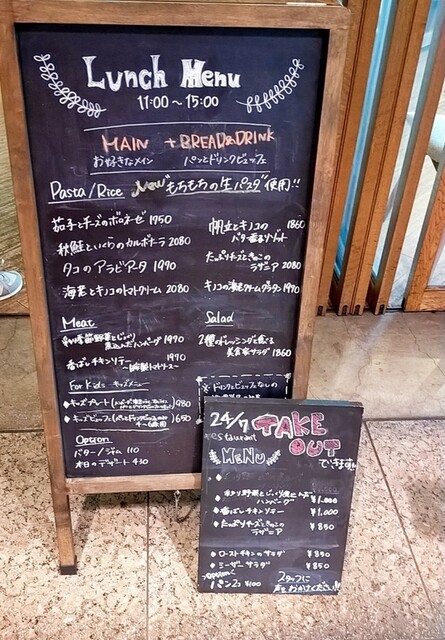 Lunch Menu
11:00～15:00
MAIN + BREAD&DRINK
お好きなメイン パンとドリンクビュッフェ
Pasta/Rice New "もちもちの生パスタ" 使用!!
茄子とチーズのボロネーゼ 1950
秋鮭といくらのカルボナーラ 2080
タコのアラビアータ 1990
海老とキノコのトマトクリーム 2080
帆立とキノコの 1860
バター香るリゾット
たっぷりチーズときのこの
ラザニア 2080
キノコの海老クリームグラタン 1990
Meat
煮込んだハンバーグ 1990
香ばしチキンソテー 1990
Salad
2種のドレッシングで食べる
美食家サラダ 1860
For Kids キッズメニュー
◆キッズプレート 980
◆キッズビュッフェ 650
Option
バター/ジャム 110
本日のデザート 430
ドリンクビュッフェなしの
24/7 TAKE
restaurant OUT
MENU できます
ハンバーグ ¥1,000
◆香ばしチキンソテー ¥1,000
◆たっぷりチーズときのこの ¥850
ラザニア
◆ローストチキンのサラダ ¥850
◆シーザーサラダ ¥850
option
パン2コ ¥100
スタッフに
声をおかけください!!